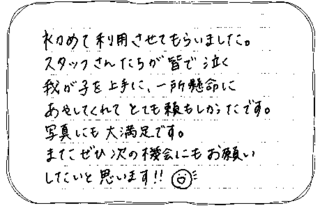 初めて利用させてもらいました。
スタッフさんたちが皆で泣く
我が子を上手に、一所懸命に
あやしてくれてとても頼もしかったです。
写真にも大満足です。
またぜひ次の機会にもお願い
したいと思います!!